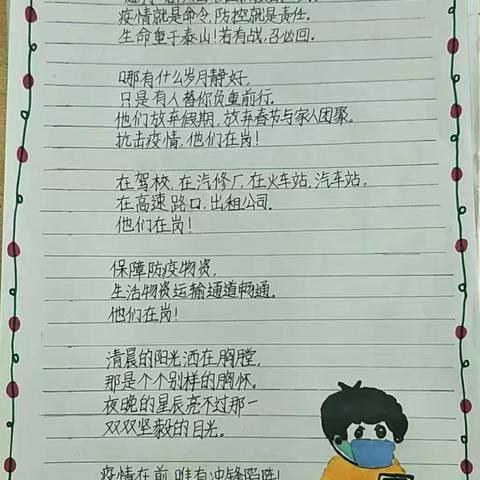 疫情就是命令,防控就是责任.
生命重于泰山!若有战,召必回.
哪有什么岁月静好,
只是有人替你负重前行.
他们放弃假期,放弃春节与家人团聚.
抗击疫情,他们在岗!
在驾校,在汽修厂,在火车站,汽车站,
在高速路口,出租公司.
他们在岗!
保障防疫物资,
生活物资运输通道畅通.
他们在岗!
清晨的阳光洒在胸膛,
那是个个别样的胸怀.
夜晚的星辰亮不过那一
双双坚毅的目光.
疫情在前,唯有冲锋陷阵!